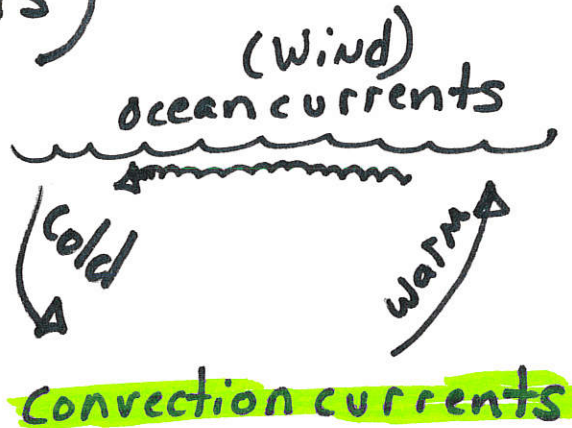 (Wind)
ocean currents
Cold
warm
Convection currents